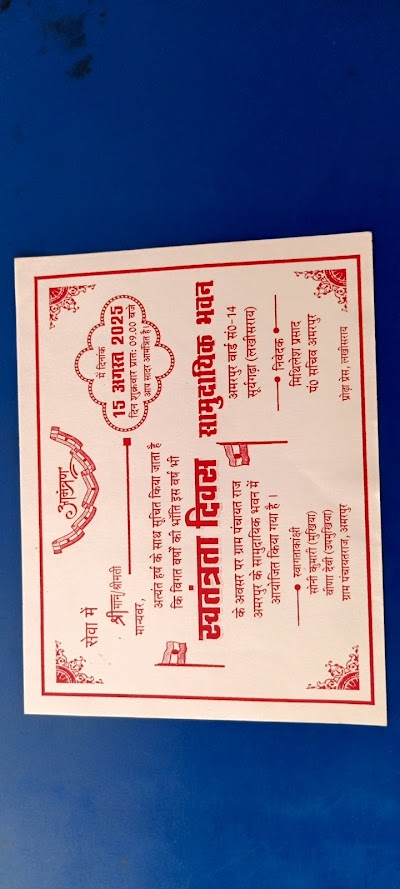 आमंत्रण
सेवा में
श्रीमान्/श्रीमती
मान्यवर,
अत्यंत हर्ष के साथ सूचित किया जाता है
कि विगत वर्षो की भाँति इस वर्ष भी
स्वतंत्रता दिवस
के अवसर पर ग्राम पंचायत राज
अमरपुर के सामुदायिक भवन में
आयोजित किया गया है ।
स्वागताकांक्षी
सोनी कुमारी (मुखिया)
वीणा देवी (उपमुखिया)
ग्राम पंचायतराज, अमरपुर
में दिनांक
15 अगस्त 2025
दिन शुक्रवार प्रातः 09.00 बजे
आप सादर आमंत्रित है।
सामुदायिक भवन
अमरपुर वार्ड सं0- 14
सूर्यगढ़ा (लखीसराय)
निवेदक
मिथिलेश प्रसाद
पं0 सचिव अमरपुर
प्रेस, लखीसराय